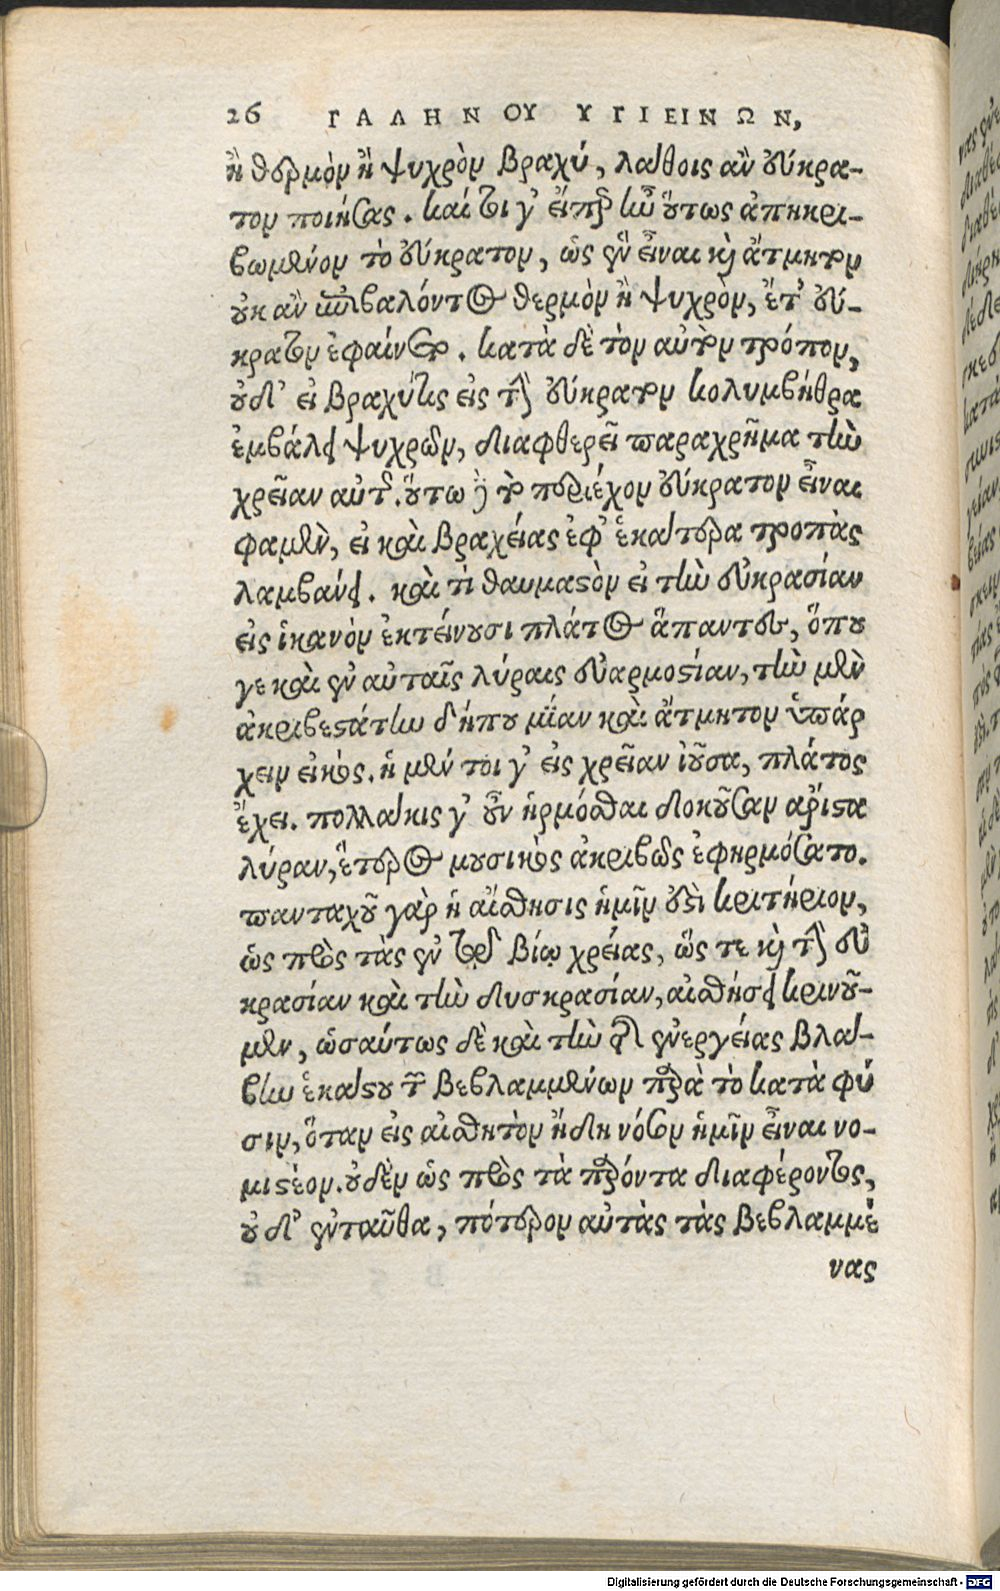 26 ΓΑΛΗΝΟΥ ΥΓΙΕΙΝΩΝ,
ἢ θερμὸν ἢ ψυχρὸν βραχύ, λάθοις ἂν εὔκρα-
τον ποιήσας. καί τοι γ' εἴπερ ἦν οὕτως ἀπηκρι-
βωμένον τὸ εὔκρατον, ὡς ἓν εἶναι καὶ ἄτμητον
οὐκ ἂν ἐπεμβαλόντος θερμὸν ἢ ψυχρὸν, ἔτ' εὔ-
κρατον ἐφαίνετο. κατὰ δὲ τὸν αὐτὸν τρόπον,
οὐδ' εἰ βραχύ τις εἰς τὴν εὔκρατον κολυμβήθρα
ἐμβάλει ψυχρὸν, διαφθερεῖ παραχρῆμα τὴν
χρείαν αὐτῆς. οὕτω καὶ τὸ περιέχον εὔκρατον εἶναι
φαμὲν, εἰ καὶ βραχείας ἐφ' ἑκάτερα τροπὰς
λαμβάνει. καὶ τί θαυμαστὸν εἰ τὴν εὐκρασίαν
εἰς ἱκανὸν ἐκτείνουσι πλάτος ἅπαντες, ὅπου
γε καὶ ἐν αὐταῖς λύραις εὐαρμοστίαν, τὴν μὲν
ἀκριβεστάτην δήπου μίαν καὶ ἄτμητον ὑπάρ
χειν εἰκός. ἡ μέν τοι γ' εἰς χρείαν ἰοῦσα, πλάτος
ἔχει. πολλάκις γ' οὖν ἡρμόσθαι δοκοῦσαν ἄριστα
λύραν, ἕτερος μουσικὸς ἀκριβῶς ἐφηρμόσατο.
πανταχοῦ γὰρ ἡ αἴσθησις ἡμῖν ἐστὶ κριτήριον,
ὡς πρὸς τὰς ἐν τῷ βίῳ χρείας, ὥς τε καὶ τὴν εὐ
κρασίαν καὶ τὴν δυσκρασίαν, αἰσθήσει κρινοῦ-
μεν, ὡσαύτως δὲ καὶ τὴν τῆς ἐνεργείας βλά-
βην ἑκάστου τῶν βεβλαμμένων παρὰ τὸ κατὰ φύ
σιν, ὅταν εἰς αἰσθητὸν ἤδη νόσον ἡμῖν εἶναι νο-
μιστέον. οὐδὲν ὡς πρὸς τὰ παρόντα διαφέροντος,
οὐδ' ἐνταῦθα, πότερον αὐτὰς τὰς βεβλαμμέ
νας
Digitalisierung gefördert durch die Deutsche Forschungsgemeinschaft - DFG